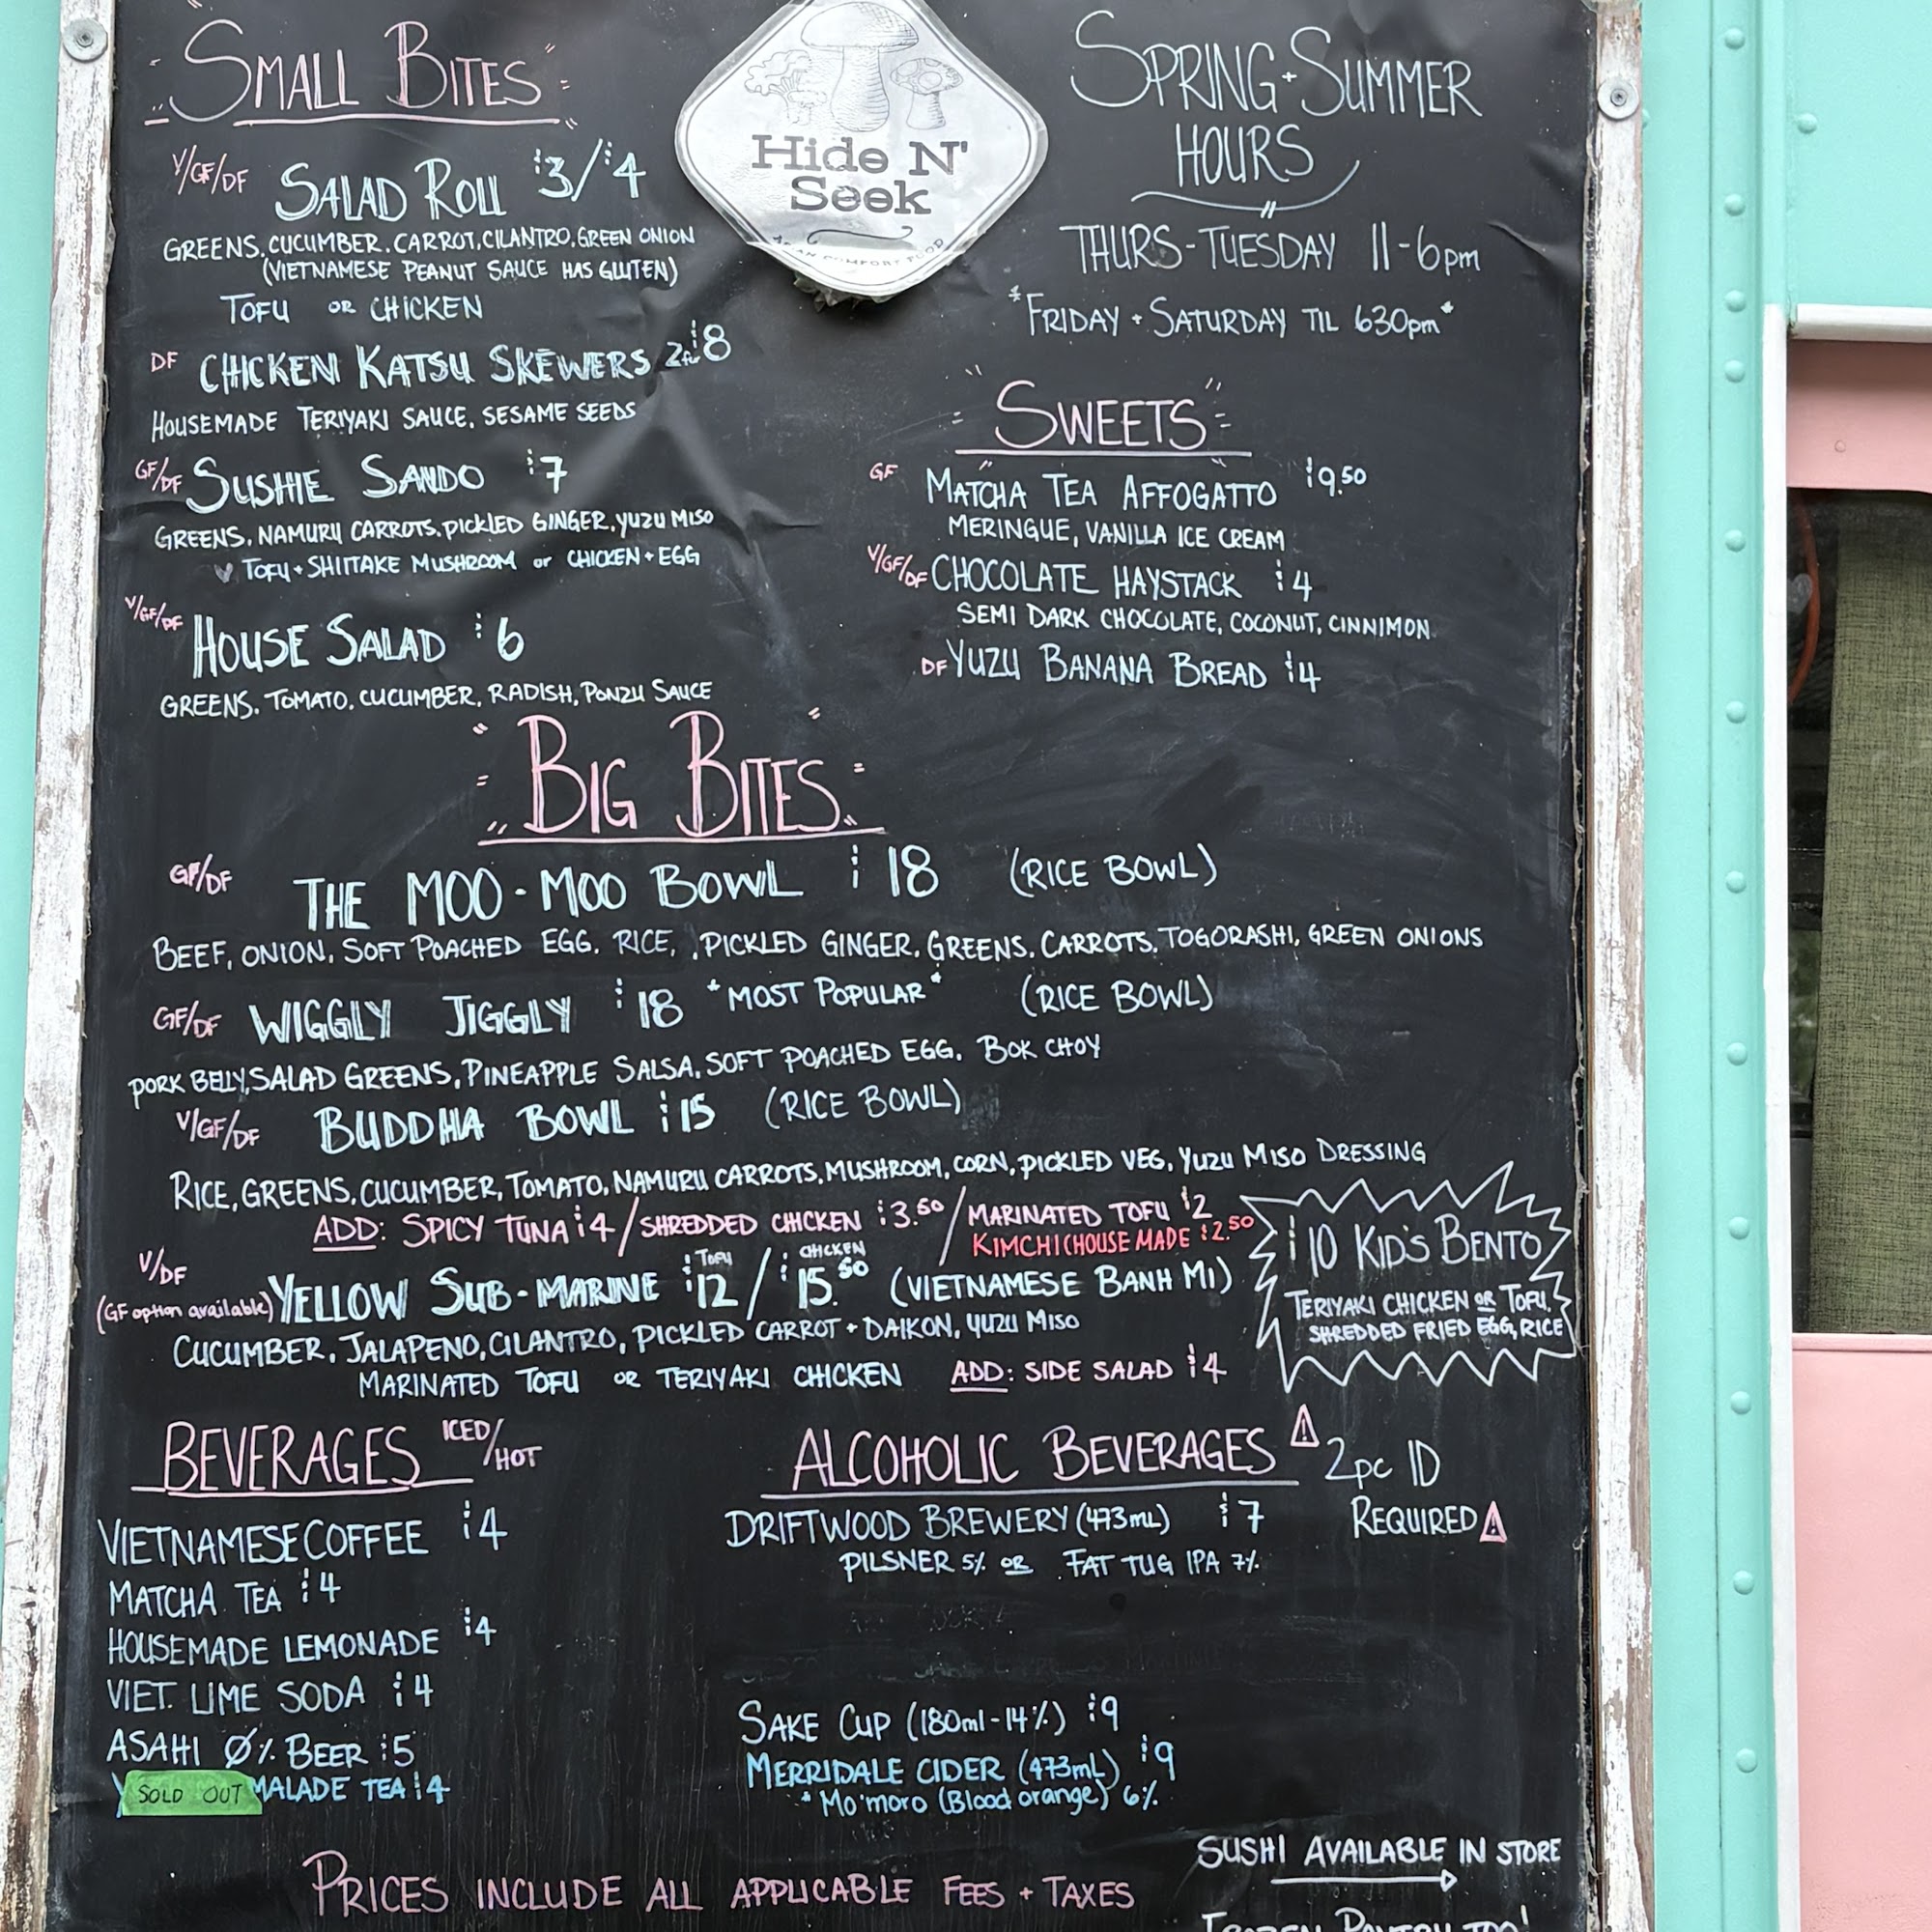 Small Bites
V/GF/DF Salad Roll $3/$4
Greens, Cucumber, Carrot, Cilantro, Green Onion
(Vietnamese Peanut Sauce has Gluten)
Tofu or Chicken
DF Chicken Katsu Skewers 2 for $8
Housemade Teriyaki Sauce, Sesame Seeds
GF/DF Sushie Sando $7
Greens, Namuru Carrots, Pickled Ginger, Yuzu Miso
V Tofu + Shiitake Mushroom or Chicken + Egg
V/GF/DF House Salad $6
Greens, Tomato, Cucumber, Radish, Ponzu Sauce
Hide N'
Seek
Spring + Summer
Hours
Thurs - Tuesday 11-6pm
*Friday + Saturday til 630pm*
Sweets
GF Matcha Tea Affogatto $9.50
Meringue, Vanilla Ice Cream
V/GF/DF Chocolate Haystack $4
Semi Dark Chocolate, Coconut, Cinnimon
DF Yuzu Banana Bread $4
Big Bites
GF/DF The Moo-Moo Bowl $18 (Rice Bowl)
Beef, Onion, Soft Poached Egg, Rice, Pickled Ginger, Greens, Carrots, Togorashi, Green Onions
GF/DF Wiggly Jiggly $18 *Most Popular* (Rice Bowl)
Pork Belly, Salad Greens, Pineapple Salsa, Soft Poached Egg, Bok Choy
V/GF/DF Buddha Bowl $15 (Rice Bowl)
Rice, Greens, Cucumber, Tomato, Namuru Carrots, Mushroom, Corn, Pickled Veg, Yuzu Miso Dressing
Add: Spicy Tuna $4 / Shredded Chicken $3.50 / Marinated Tofu $2
Kimchi (House Made $2.50
V/DF
(GF option available) Yellow Sub-Marine Tofu $12 / Chicken $15.50 (Vietnamese Banh Mi)
Cucumber, Jalapeno, Cilantro, Pickled Carrot + Daikon, Yuzu Miso
Marinated Tofu or Teriyaki Chicken Add: Side Salad $4
$10 Kid's Bento
Teriyaki Chicken or Tofu,
Shredded Fried Egg, Rice
Beverages Iced/Hot
Vietnamese Coffee $4
Matcha Tea $4
Housemade Lemonade $4
Viet. Lime Soda $4
Asahi 0% Beer $5
SOLD OUT malade Tea $4
Alcoholic Beverages ⚠ 2pc ID
Required ⚠
Driftwood Brewery (473mL) $7
Pilsner 5% or Fat Tug IPA 7%
Sake Cup (180ml - 14%) $9
Merridale Cider (473mL) $9
* Mo'moro (Blood orange) 6%
Prices include all applicable fees + taxes
Sushi available in store
Frozen Pantry too!